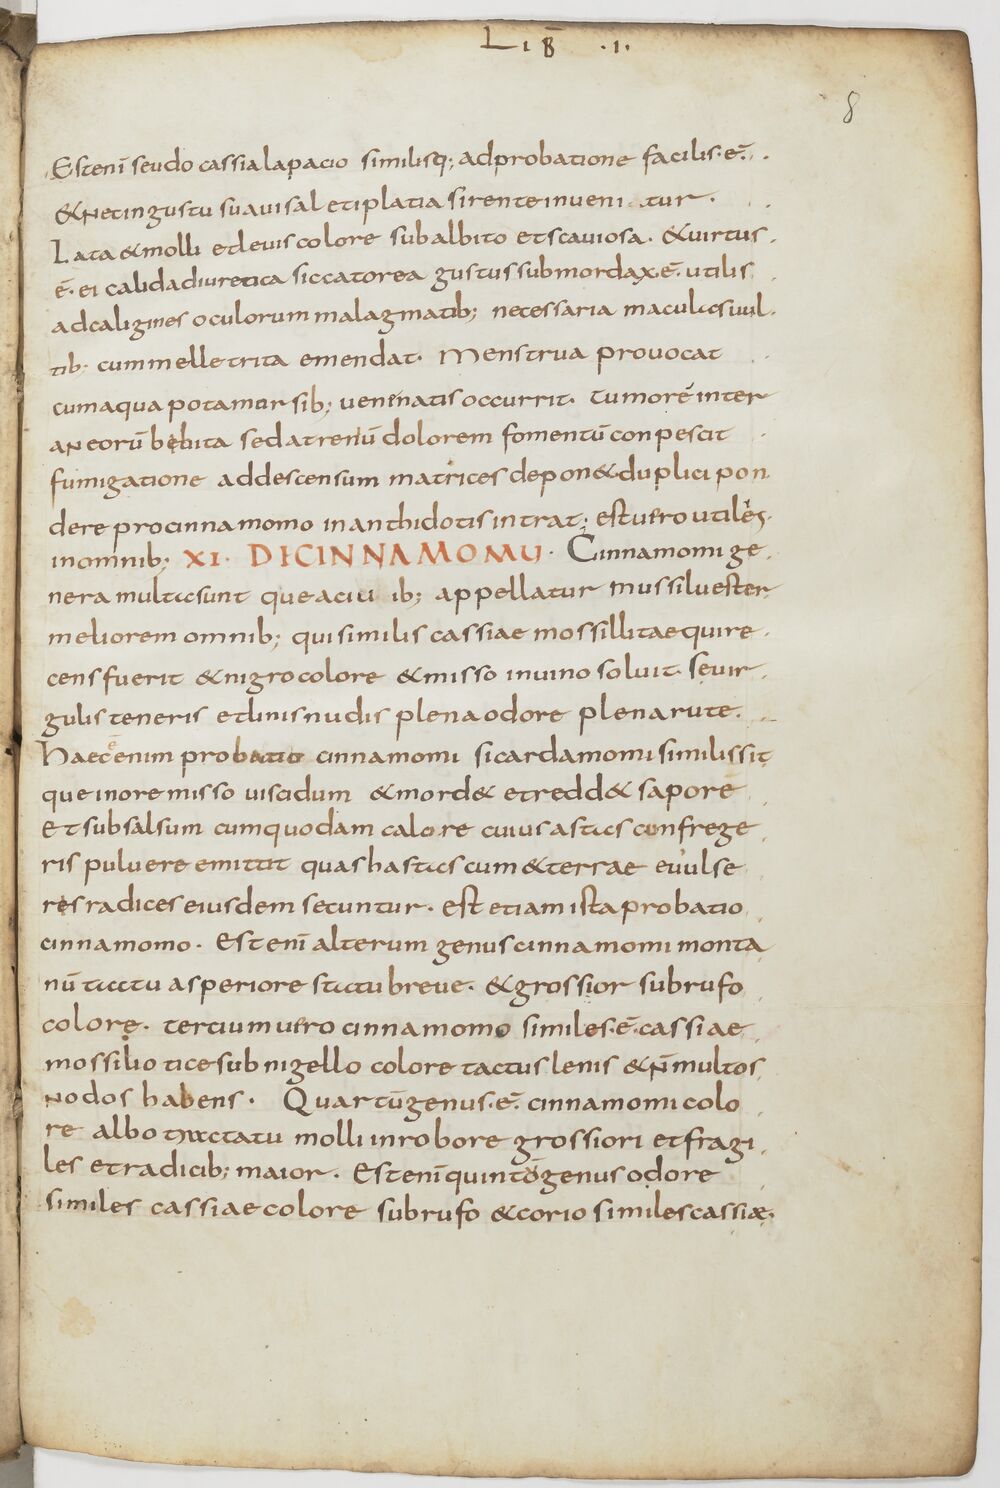 LIB̅ ·I·
8
Est eni̅ seudo cassia lapacio similisq; ad probatione facilis· e̅·
& netin gustu suavis aletiplatia sirente inveni tur·
Lata & molli et levis colore subalbito et scaviosa· & virtus
e̅· ei calida diuretica siccatorea gustus submordax e̅· utilis
ad caligines oculorum malagmatib; necessaria maculas vul
tib; cum melle trita emendat· Menstrua provocat
cum aqua potamur sib; venenatis occurrit· tumore̅ inter
aneoru̅ bebita sedat renu̅ dolorem fomentu̅ conpescit
fumigatione ad descensum matrices depon& duplici pon
dere pro cinnamomo in anthidotis intrat; est vero utiles·
in omnib; XI· DI CINNAMOMU· Cinnamomi ge
nera multa sunt que a civi ib; appellatur mussilvester
meliorem omnib; qui similis cassiae mossillitae qui re
cens fuerit & nigro colore & misso in vino soluit· se vir
gulis teneris et linis nudis plena odore plena rute·
Haec e̅ enim probatio cinnamomi si cardamomi similis sit
que in ore misso viscidum & mord& et redd& sapore
Et subsalsum cum quodam calore cuius astas confrege
ris pulvere emittit quas hastas cum & terrae evulse
res radices eiusdem secuntur· est etiam ista probatio
cinnamomo· Est eni̅ alterum genus cinnamomi monta
nu̅ tactu asperiore statu breve· & grossior subrufo
colore· tercium vero cinnamomo similes· e̅· cassiae
mossilio tice subnigello colore tactus lenis & n̅ multos
nodos habens· Quartu̅ genus· e̅· cinnamomi colo
re albo tactatu molli in robore grossiori et fragi
les et radicib; maior· Est eni̅ quinto genus odore
similes cassiae colore subrufo & corio similes cassiæ·